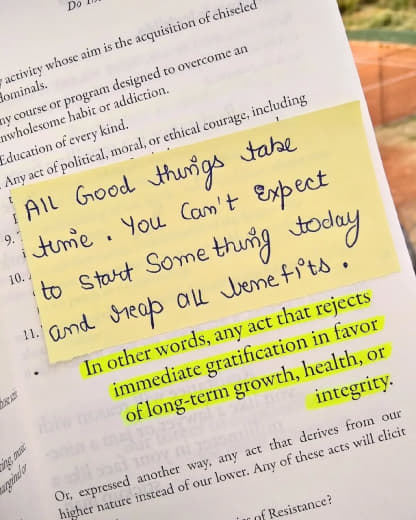 Do
activity whose aim is the acquisition of chiseled
dominals.
ny course or program designed to overcome an
nwholesome habit or addiction.
Education of every kind.
Any act of political, moral, or ethical courage, including
All Good things take
9.
time. You Can't Expect
10.
to Start Something today
11.
and reap all benefits.
In other words, any act that rejects
immediate gratification in favor
of long-term growth, health, or
integrity.
Or, expressed another way, any act that derives from our
higher nature instead of our lower. Any of these acts will elicit
of Resistance?